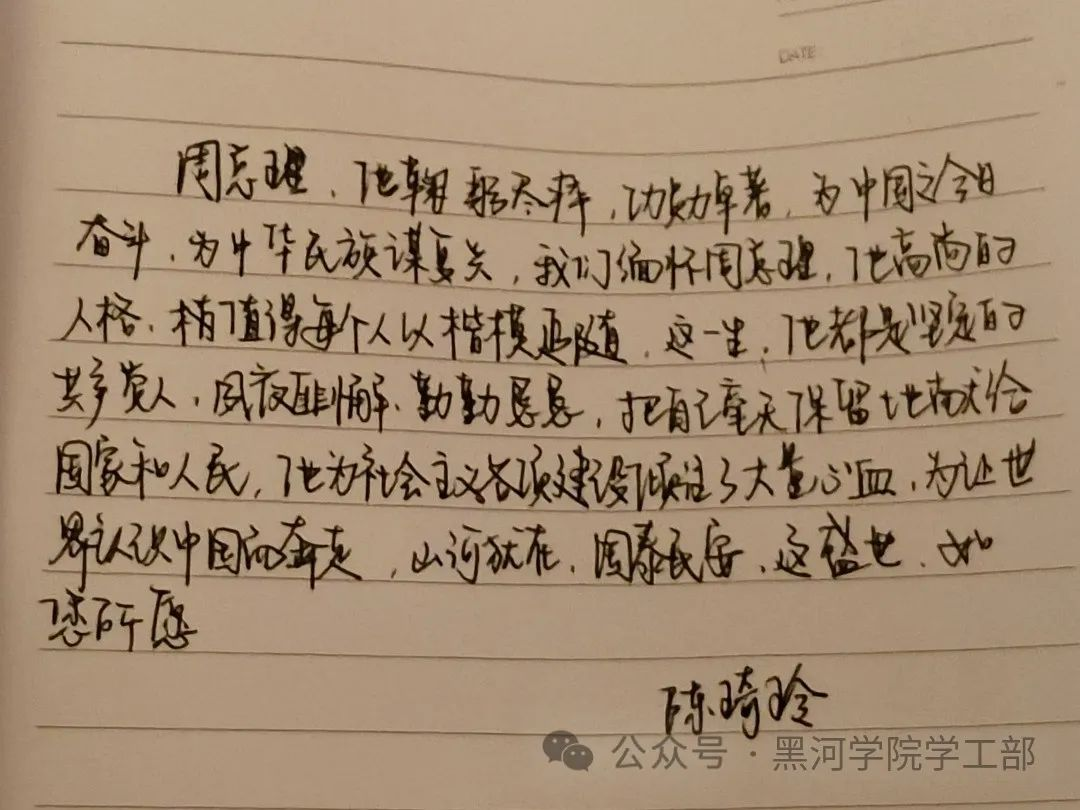 DATE
周总理,他鞠躬尽瘁,功勋卓著,为中国之今日
奋斗,为中华民族谋复兴,我们缅怀周总理,他高尚的
人格、精值得每个人以楷模追随,这一生,他都是坚定的
共产党人,夙夜匪懈、勤勤恳恳,把自己毫无保留地献给
国家和人民,他为社会主义各项建设倾注了大量心血,为让世
界认识中国而奔走,山河犹在,国泰民安,这盛世,如
您所愿
陈琦玲
公众号·黑河学院学工部